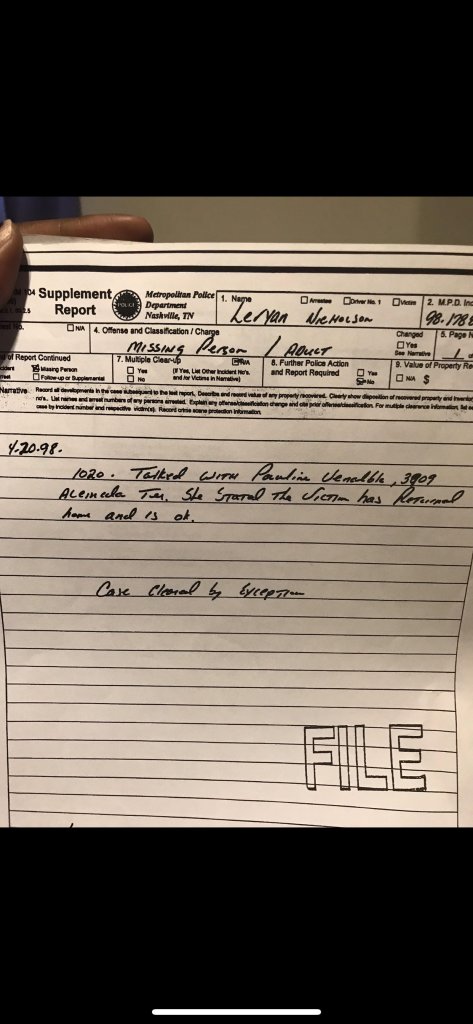 104 Supplement Report
POLICE
Metropolitan Police Department Nashville, TN
1. Name
Arrestee
Driver No. 1
Victim
2. M.P.D. Inc
LeNan Nicholson
98-178
N/A
4. Offense and Classification / Charge
Changed
Yes
See Narrative
5. Page N
Missing Person / Adult
1
of Report Continued
Missing Person
Follow-up or Supplemental
7. Multiple Clear-up
N/A
Yes
No
(If Yes, List Other Incident No's. and /or Victims in Narrative)
8. Further Police Action and Report Required
Yes
No
9. Value of Property Re
N/A $
Narrative
Record all developments in the case subsequent to the last report. Describe and record value of any property recovered. Clearly show disposition of recovered property and
no's. List names and arrest numbers of any persons arrested. Explain any offense/classification change and cite prior offense/classification. For multiple clearance information, list
case by incident number and respective victim(s). Record crime scene protection information.
4-20-98.
1020. Talked with Pauline Venable, 3909
Ter. She Stated The Victim has Returned
home and is ok.
Case Cleared by Exception
FILE